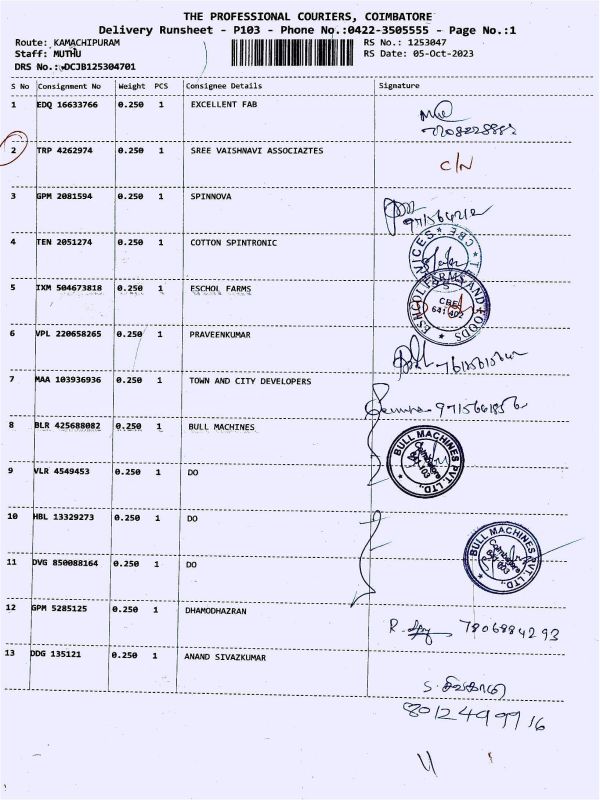 THE PROFESSIONAL COURIERS, COIMBATORE
Delivery Runsheet - P103 - Phone No.:0422-3505555 - Page No.:1
Route: KAMACHIPURAM RS No.: 1253047
Staff: MUTHU RS Date: 05-Oct-2023
DRS No.: DCJB125304701
S No Consignment No Weight PCS Consignee Details Signature
1 EDQ 16633766 0.250 1 EXCELLENT FAB
2 TRP 4262974 0.250 1 SREE VAISHNAVI ASSOCIAZTES C/N
3 GPM 2081594 0.250 1 SPINNOVA
4 TEN 2051274 0.250 1 COTTON SPINTRONIC
5 IXM 504673818 0.250 1 ESCHOL FARMS
ESHCOL FARMS AND FOODS
CBE
641 402
6 VPL 220658265 0.250 1 PRAVEENKUMAR
7 MAA 103936936 0.250 1 TOWN AND CITY DEVELOPERS
8 BLR 425688082 0.250 1 BULL MACHINES
BULL MACHINES PVT. LTD.,
Coimbatore
9 VLR 4549453 0.250 1 DO
10 HBL 13329273 0.250 1 DO
BULL MACHINES PVT. LTD.,
Coimbatore
11 DVG 850088164 0.250 1 DO
12 GPM 5285125 0.250 1 DHAMODHAZRAN
R. 7806884293
13 DDG 135121 0.250 1 ANAND SIVAZKUMAR
8012499916